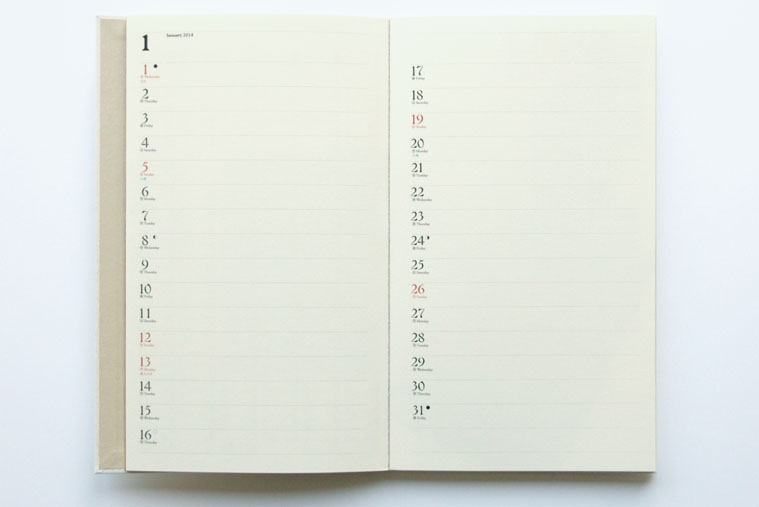 1
January 2014
1
Wednesday
2
Thursday
3
Friday
4
Saturday
5
Sunday
6
Monday
7
Tuesday
8
Wednesday
9
Thursday
10
Friday
11
Saturday
12
Sunday
13
Monday
14
Tuesday
15
Wednesday
16
Thursday
17
Friday
18
Saturday
19
Sunday
20
Monday
21
Tuesday
22
Wednesday
23
Thursday
24
Friday
25
Saturday
26
Sunday
27
Monday
28
Tuesday
29
Wednesday
30
Thursday
31
Friday